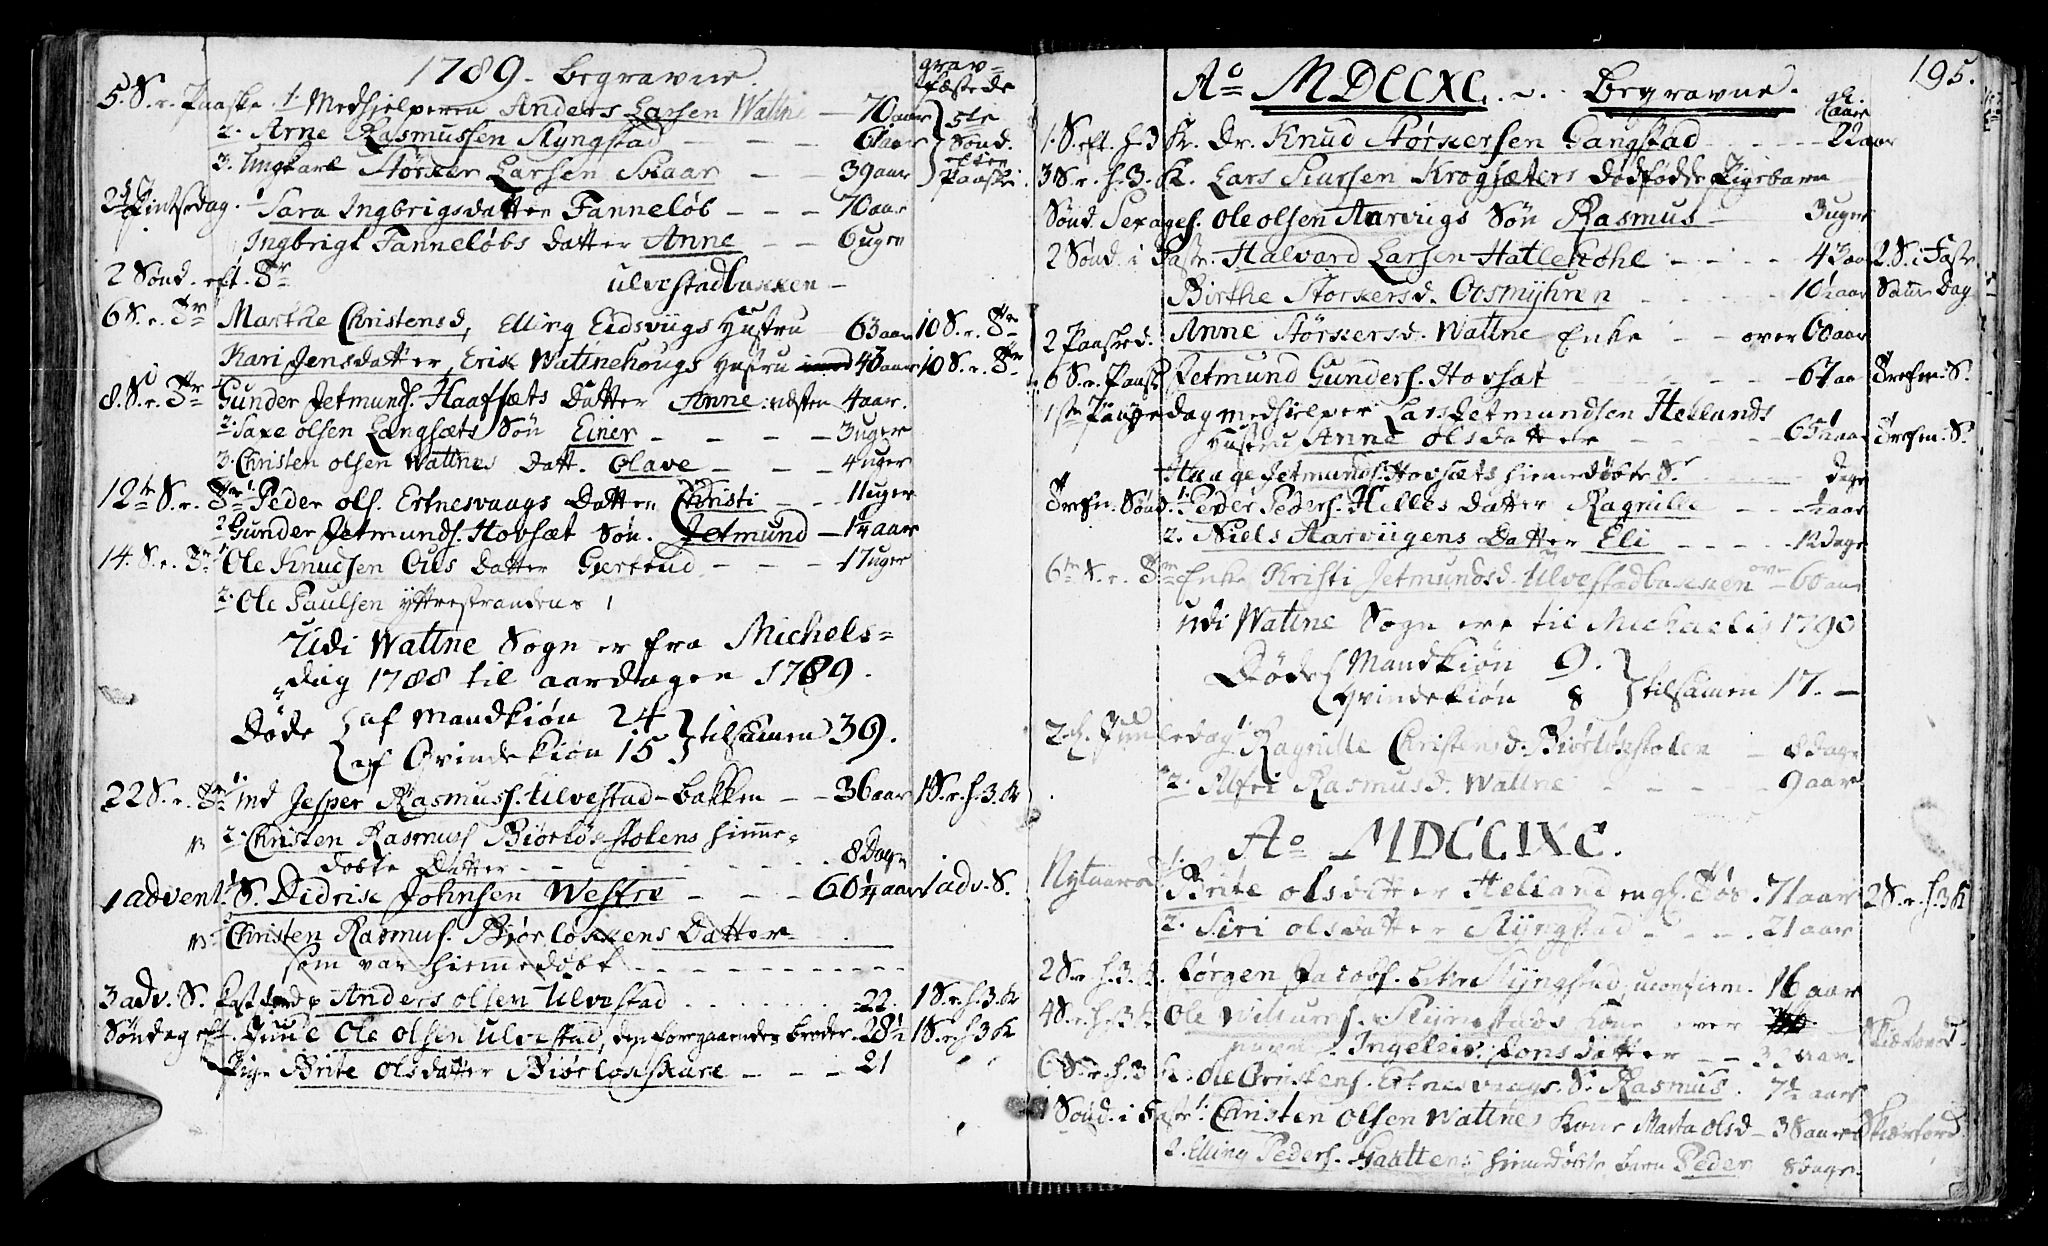 1789. Begravne.
grav-
fæstede
5. S. e. Paaske. 1. Medhielperen Anders Larsen Watne — 70 aar
2. Arne Rasmussen Slyngstad — — — 61 aar
5te Sønd. efter Paaske
3. Ungkarl Størker Larsen Skaar — — 39 aar
2den Pintsedag. Sara Ingbrigsdatter Fanneløb — — — 70 aar
Ingbrigt Fanneløbs datter Anne — — 6 uger
2 Sønd. eft. Tr. Ulvestadbakken —
6 S. e. Tr. Marthe Christensd. Elling Eidsviigs Hustru 63 aar 10 S. e. Tr.
Kari Jensdatter, Erik Watnehougs Hustru 46 aar 10 S. e. Tr.
8. S. e. Tr. Gunder Jetmunds. Haafsæts Datter Anne næsten 4 aar.
2. Saxe Olsen Langsæts Søn Einer — — — 3 uger
3. Christen Olsen Watnes Datt. Olave — — — 4 uger
12te S. e. Tr. 1. Peder Ols. Ertnesvaags Datter Christi — — 11 uger
2. Gunder Jetmunds. Hovsæt Søn. Jetmund — 1¼ aar
14. S. e. Tr. Ole Knudsen Aus datter Giertrud — — — 17 uger
2. Ole Paulsen Yttrestrandens 1
Udi Watne Sogn er fra Michels-
dag 1788 til aardagen 1789.
Døde af Mandkiøn 24
af Qvindekiøn 15 tilsamen 39.
22 S. e. Tr. 1. Jesper Rasmuss. Ulvestad-bakken — — 36 aar 1 S. e. h. 3. K
2. Christen Rasmuss Biørløkstolens hieme-
døbte Datter — — 8 Dage
1 Advent. S. Didrik Johnsen Westre — — — 60¼ aar 1 adv. S.
Christen Rasmus. Biørløkkens Datter
som var hiemmedøbt
3 adv. S. Anders Olsen Ulvestad 22. 1 S. e. h. 3. K
Søndag eft. Juul Ole Olsen Ulvestad, den foregaaendes broder 28½ 1 S. e. h. 3 K
Pige Brite Olsdatter Biørløkskare — — — 21
195.
Ao MDCCXC. Begravne.
1. S. eft. h. 3 K. Dr. Knud Størkersen Gangstad 22 aar
3 S. e. h. 3. K. Lars Siursen Krogsæters dødfødde Pigebarn
Sønd. Sexages. Ole Olsen Aarviigs Søn Rasmus — 3 uger
2 Sønd. i Faste. Halvard Larsen Hatlehohl — 43 aar 2. S. i Faste.
Birthe Størkersd. Oosmyhren — 10½ aar Samme Dag
2 Paasked. Anne Størkersd. Watne Enke — — over 60 aar
6 S. e. Paask Jetmund Gunders. Hovsæt — 67 aar Trefn. S.
1ste Pintsedag medhielper Lars Jetmundsen Hellands
Hustru Anne Olsdatter — 65½ aar Trefn. S.
Jetmunds. Hovsæts hiemedøbte S. dage
Trefn. Sønd. 1. Peder Peders. Helles datter Ragnille — ½ aar
2. Niels Harviigens Datter Eli — 12 dage
6te S. e. Tr. Enke Kristi Jetmundsd. Ulvestadbakken over 60 aar
Udi Watne Sogn ere til Michaelis 1790
Døde Mandkiøn 9.
Qvindekiøn 8 tilsamen 17. —
2. Juuledag 1. Ragnille Christensd. Biørløkstolen — 8 dage
2. Alfri Rasmusd. Watne — 9 aar
Ao MDCCIXC.
Nytaarsd 1. Brite Olsdatter Helland 71 aar 2 S. e. h. 3 K
2. Siri Olsdatter Slyngstad — 21 aar
2 S. e. h. 3. K. Jørgen Jacobs. Slyngstad, uconfirm. 16 aar
4 S. e. h. 3 K Ole Slyngstads Kone over
navn Ingeleiv Jonsdatter — — aar.
6 S. e. h. 3 K. Ole Christens. Ertnesvaags S. Rasmus. 7½ aar
1 Sønd. i Faste 1. Christen Olsen Watnes Kone Marta Olsd — 38 aar
2. Elling Peders. Gaattens hiemedøbte barn Peder 8 dage